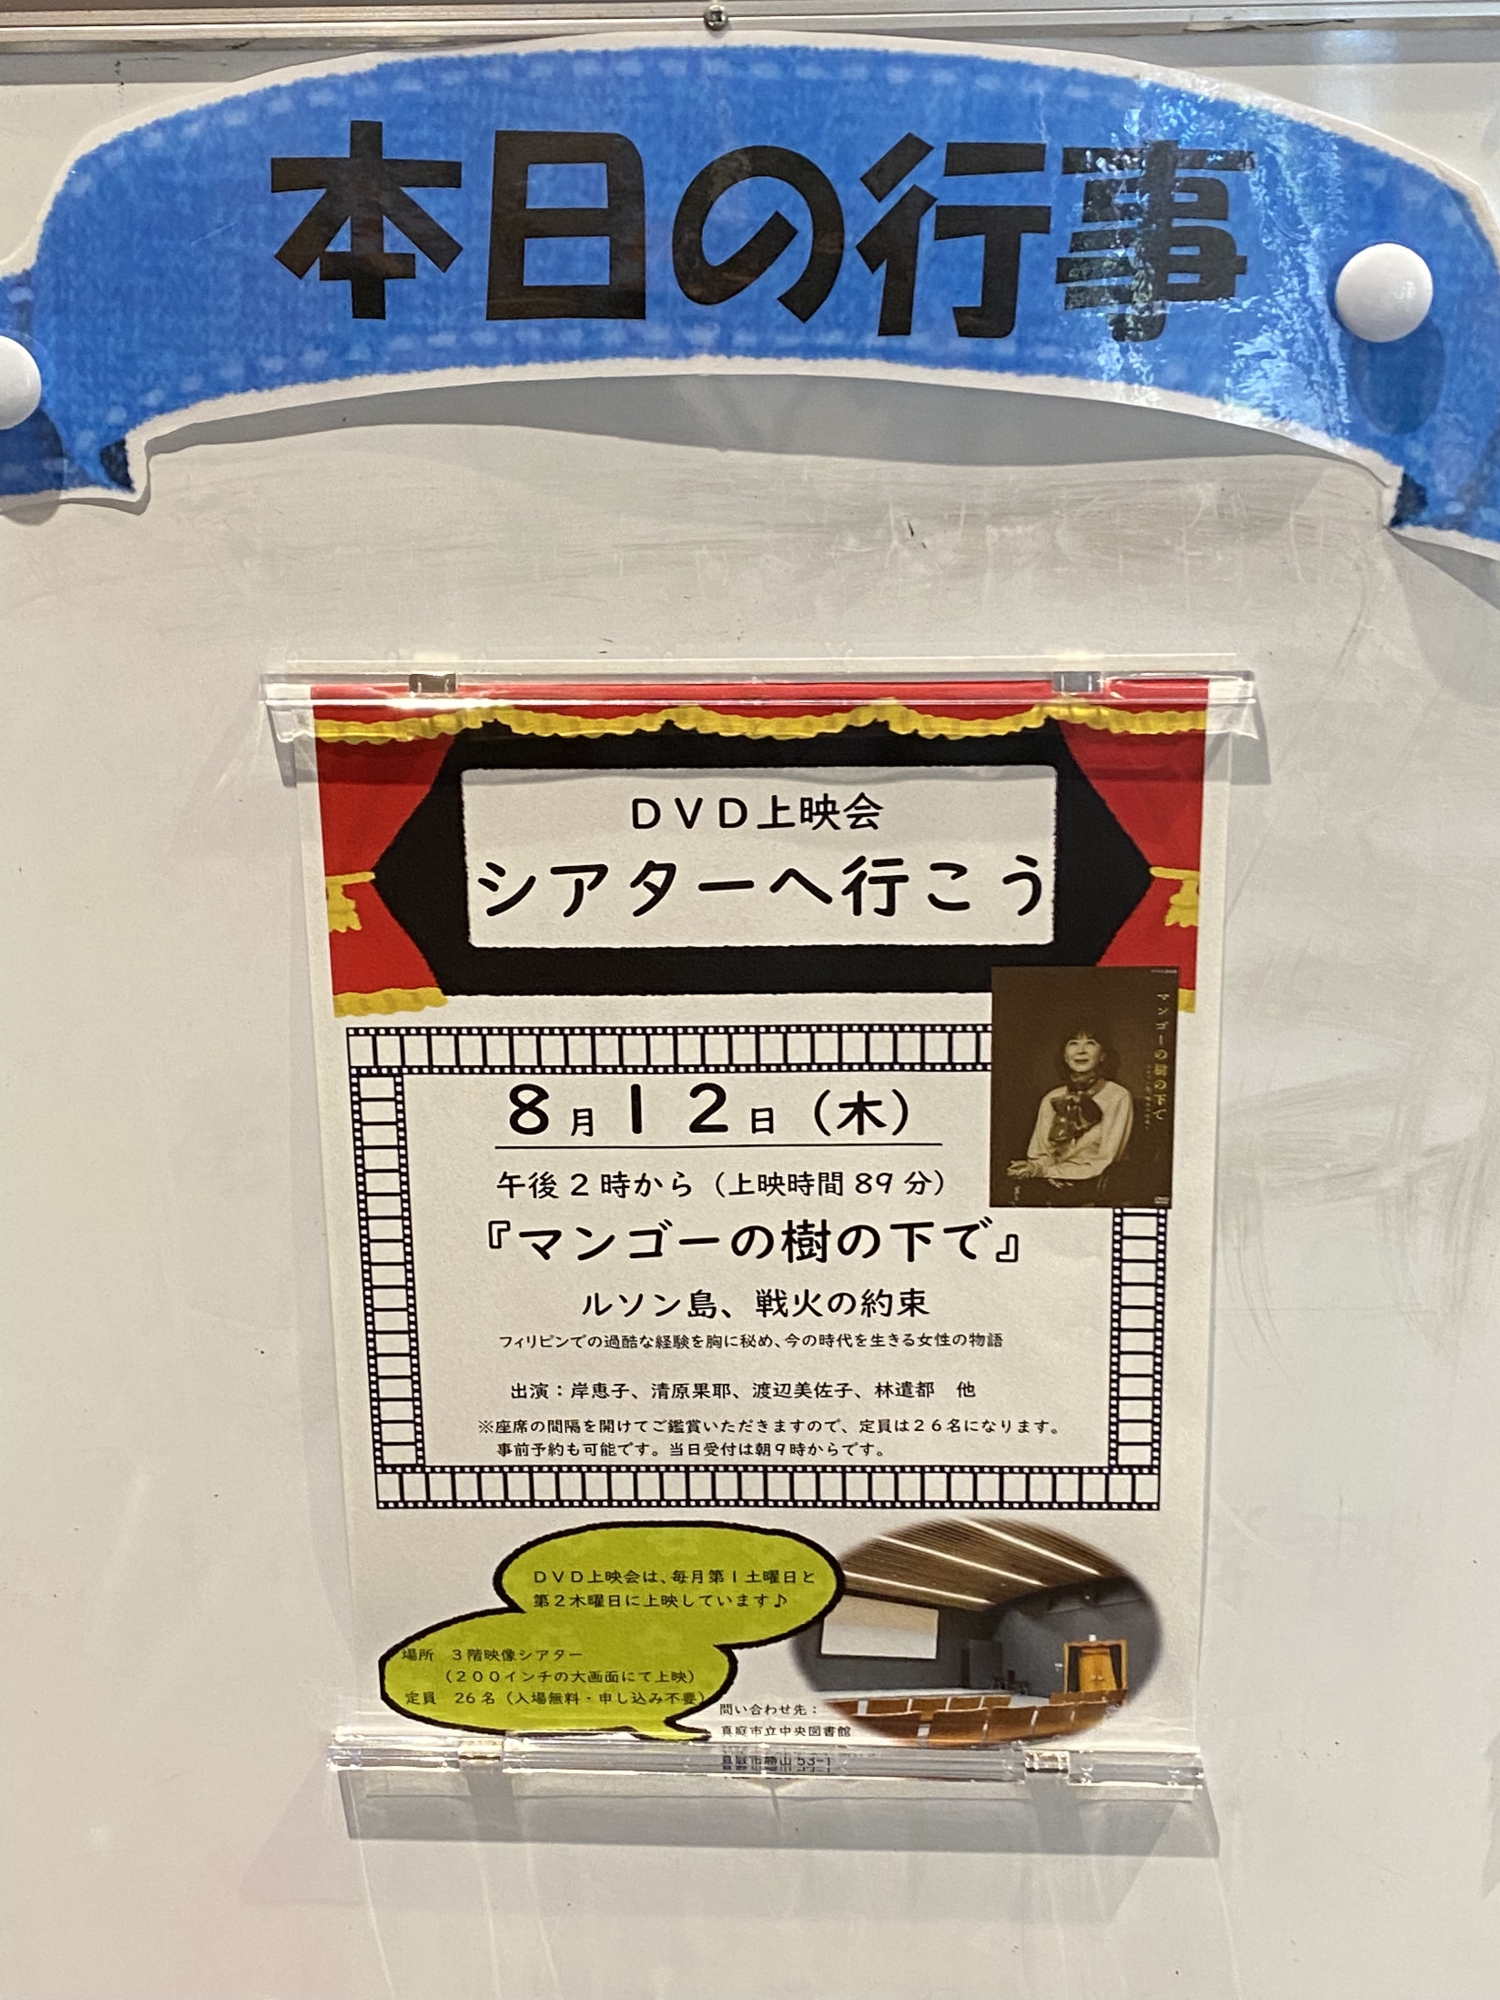 本日の行事
DVD上映会
シアターへ行こう
マンゴーの樹の下で
8月12日（木）
午後2時から（上映時間89分）
『マンゴーの樹の下で』
ルソン島、戦火の約束
フィリピンでの過酷な経験を胸に秘め、今の時代を生きる女性の物語
出演：岸惠子、清原果耶、渡辺美佐子、林遣都　他
※座席の間隔を開けてご鑑賞いただきますので、定員は26名になります。
事前予約も可能です。当日受付は朝9時からです。
DVD上映会は、毎月第1土曜日と
第2木曜日に上映しています♪
場所　3階映像シアター
（200インチの大画面にて上映）
定員　26名（入場無料・申し込み不要）
問い合わせ先：
真庭市立中央図書館
真庭市勝山53-1